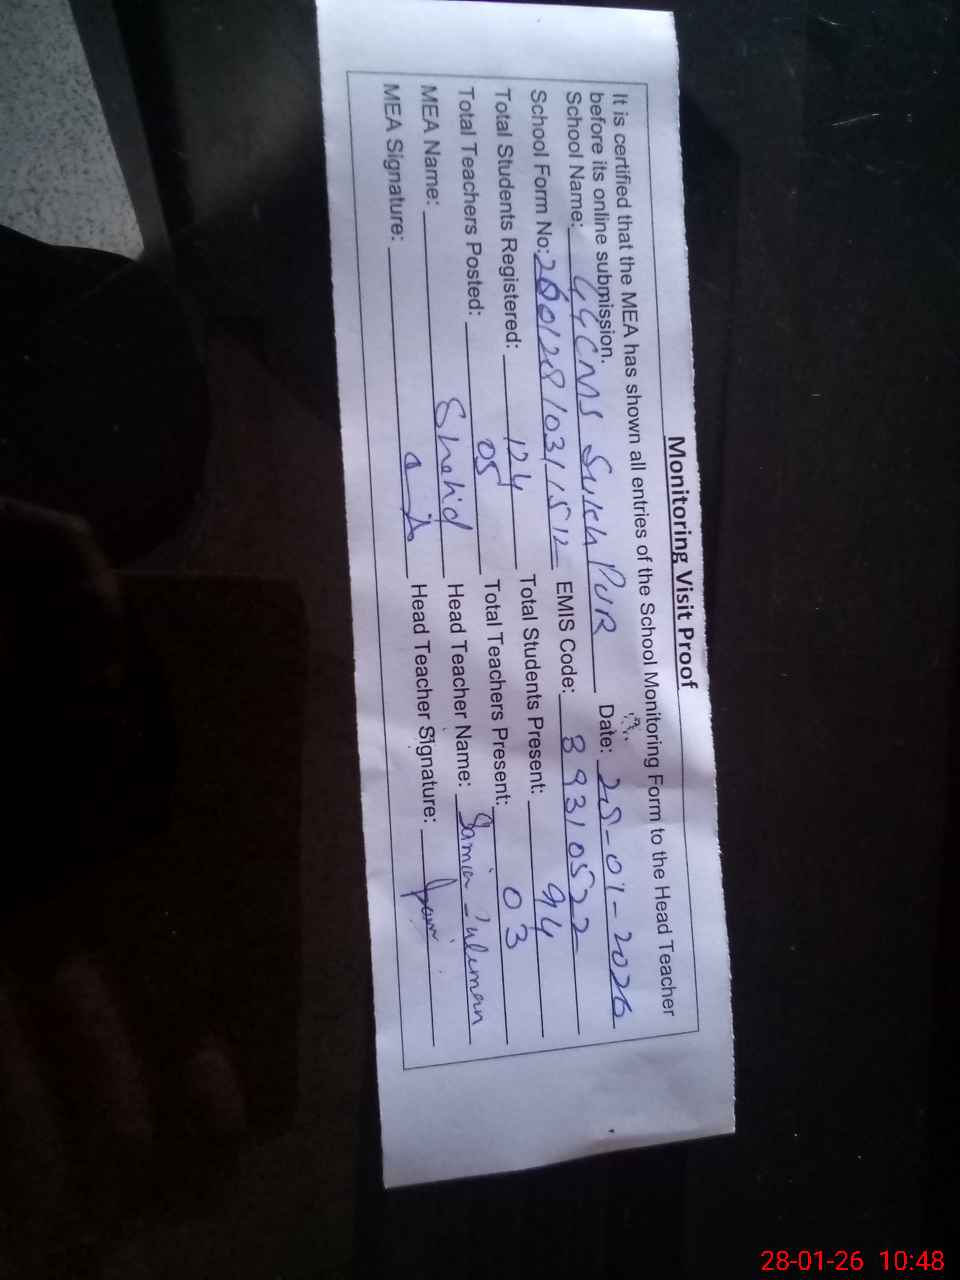 Monitoring Visit Proof
It is certified that the MEA has shown all entries of the School Monitoring Form to the Head Teacher
before its online submission.
School Name: GGCMS Sukh PUR Date: 28-01-2026
School Form No: 26012810311512 EMIS Code: 389310522
Total Students Registered: 124 Total Students Present: 94
Total Teachers Posted: 05 Total Teachers Present: 03
MEA Name: Shahid Head Teacher Name: Samia
MEA Signature: Head Teacher Signature:
28-01-26 10:48